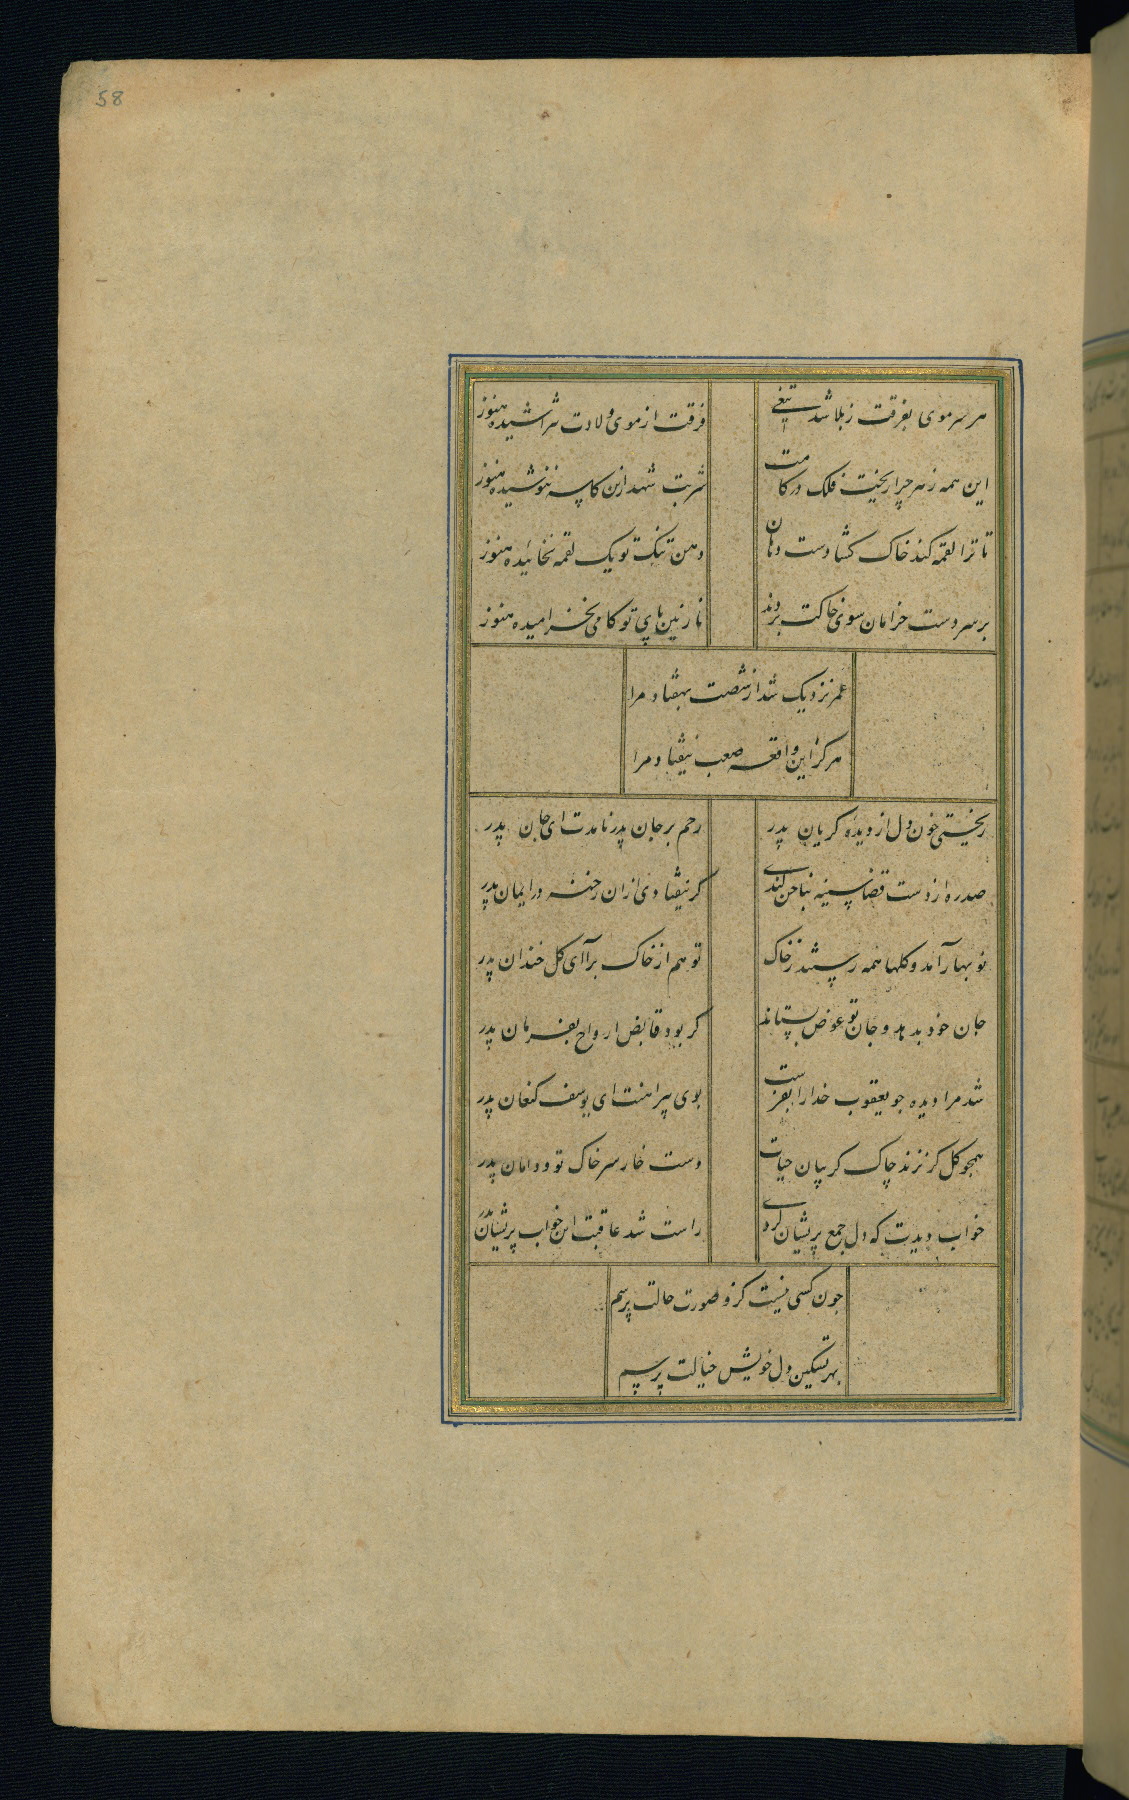 58
هر سر موی بفرقت ز بلا شد تیغی
فرقت از موی ولادت نتراشیده هنوز
این همه زهر چرا ریخت فلک در کامت
شربت شهد ازین کاسه ننوشیده هنوز
تا ترا لقمه کند خاک کشادست دهان
دهن تنک تو یک لقمه نخائیده هنوز
بر سر دست خرامان سوی خاکت بردند
نازنین پای تو کامی نخرامیده هنوز
عمر نزدیک شد از شصت بهفتاد مرا
هرکز این واقعه صعب نیفتاد مرا
ریختی خون دل از دیده کریان پدر
رحم بر جان پدر نامدت ای جان پدر
صد ره از دست قضا سینه بناخن کندی
کر نیفتادی ازان رخنه در ایمان پدر
نو بهار آمد و کلها همه رستند ز خاک
تو هم از خاک برآ ای کل خندان پدر
جان خود بدهد و جان تو عوض بستاند
کر بود قابض ارواح بفرمان پدر
شد مرا دیده چو یعقوب خدا را بفرست
بوی پیراهنت ای یوسف کنعان پدر
همچو کل کر نزند چاک کریبان حیات
دست خار سر خاک تو و دامان پدر
خواب دیدت که دل جمع پریشان کردی
راست شد عاقبت این خواب پریشان پدر
چون کسی نیست کزو صورت حالت پرسم
بهر تسکین دل خویش خیالت پرسم